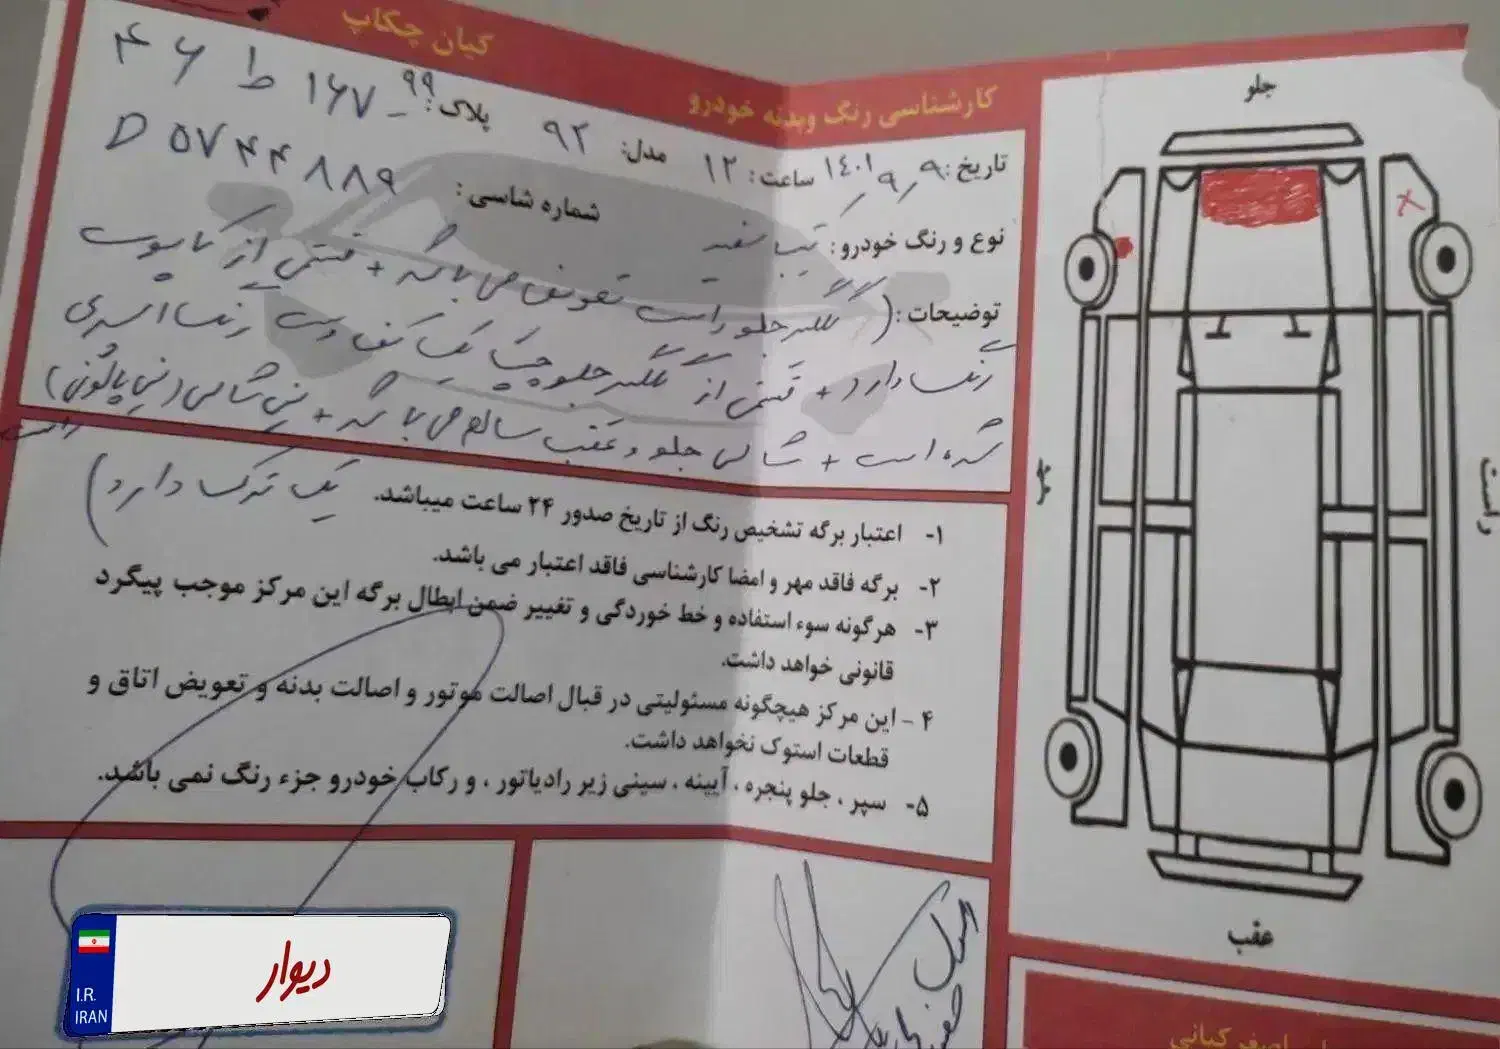 کیان چکاپ
کارشناسی رنگ وبدنه خودرو
تاریخ: ۱۴۰۱/۹/۹ ساعت: ۱۲ مدل: ۹۲ پلاک: ۹۹ - ۱۶۷ ط ۴۶
شماره شاسی: D ۵۷۴۴۸۸۹
نوع و رنگ خودرو: تیبا سفید
توضیحات: (گلگیر جلو راست تعویض می باشد + قسمتی از کاپوت
رنگ دارد + قسمتی از گلگیر جلو چپ یک کف دست رنگ اسپری
شده است + شاسی جلو و عقب سالم می باشد + سینی شاسی (سینی پالونی)
راست
یک ترک دارد)
۱- اعتبار برگه تشخیص رنگ از تاریخ صدور ۲۴ ساعت میباشد.
۲- برگه فاقد مهر و امضا کارشناسی فاقد اعتبار می باشد.
۳- هرگونه سوء استفاده و خط خوردگی و تغییر ضمن ابطال برگه این مرکز موجب پیگرد
قانونی خواهد داشت.
۴- این مرکز هیچگونه مسئولیتی در قبال اصالت موتور و اصالت بدنه و تعویض اتاق و
قطعات استوک نخواهد داشت.
۵- سپر ، جلو پنجره ، آیینه ، سینی زیر رادیاتور ، و رکاب خودرو جزء رنگ نمی باشد.
جلو
چپ
راست
عقب
اصغر کیانی
دیوار
I.R.
IRAN